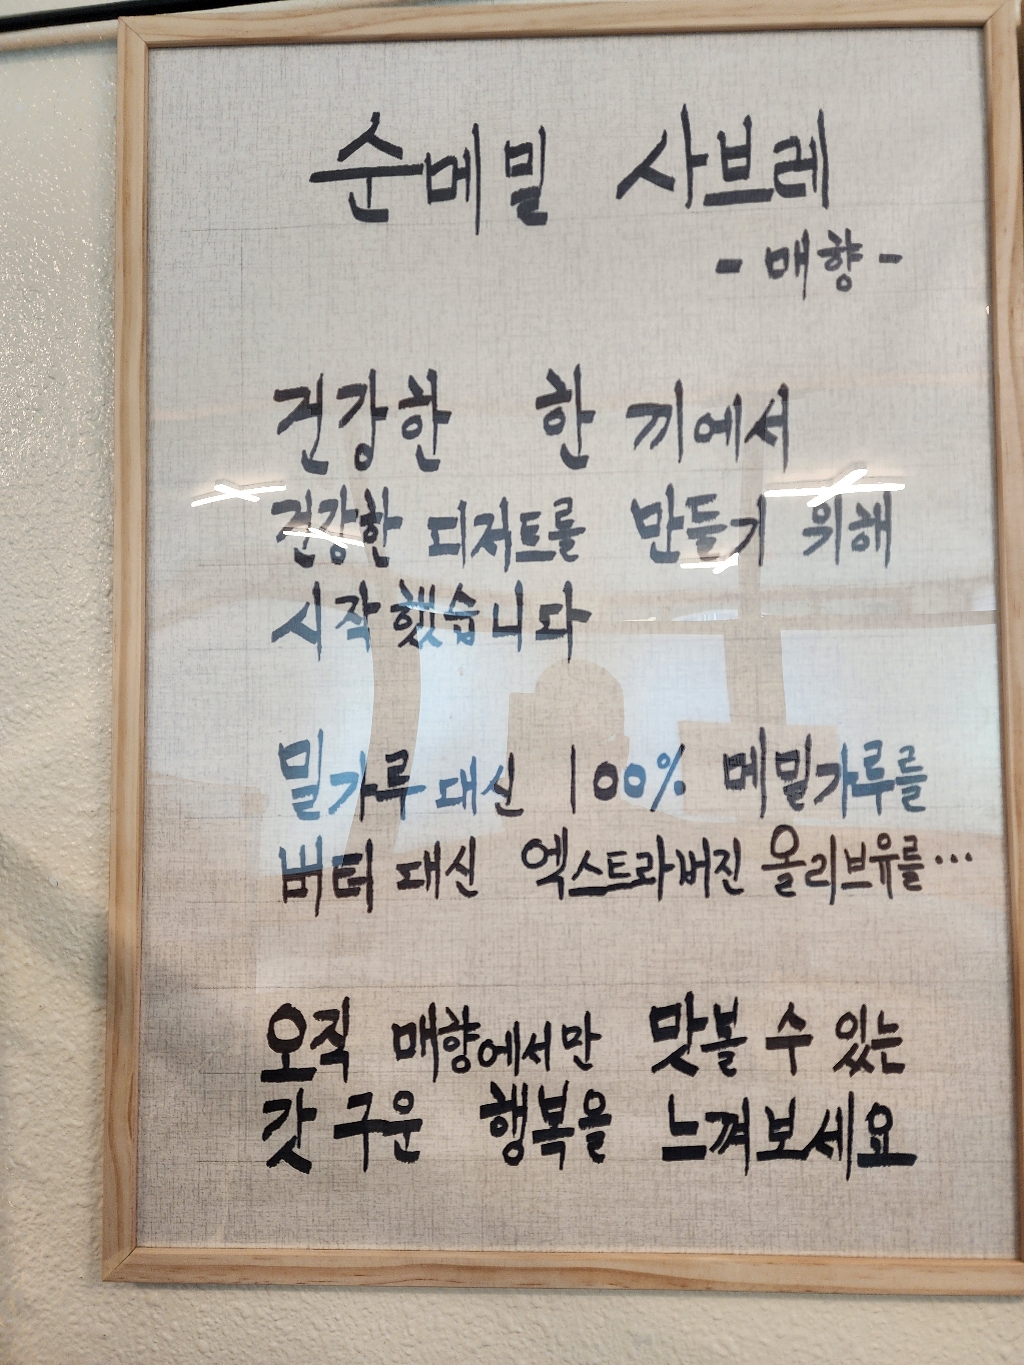 순메밀 사브레
- 매향 -
건강한 한 끼에서
건강한 디저트를 만들기 위해
시작했습니다
밀가루 대신 100% 메밀가루를
버터 대신 엑스트라버진 올리브유를...
오직 매향에서만 맛볼 수 있는
갓 구운 행복을 느껴보세요